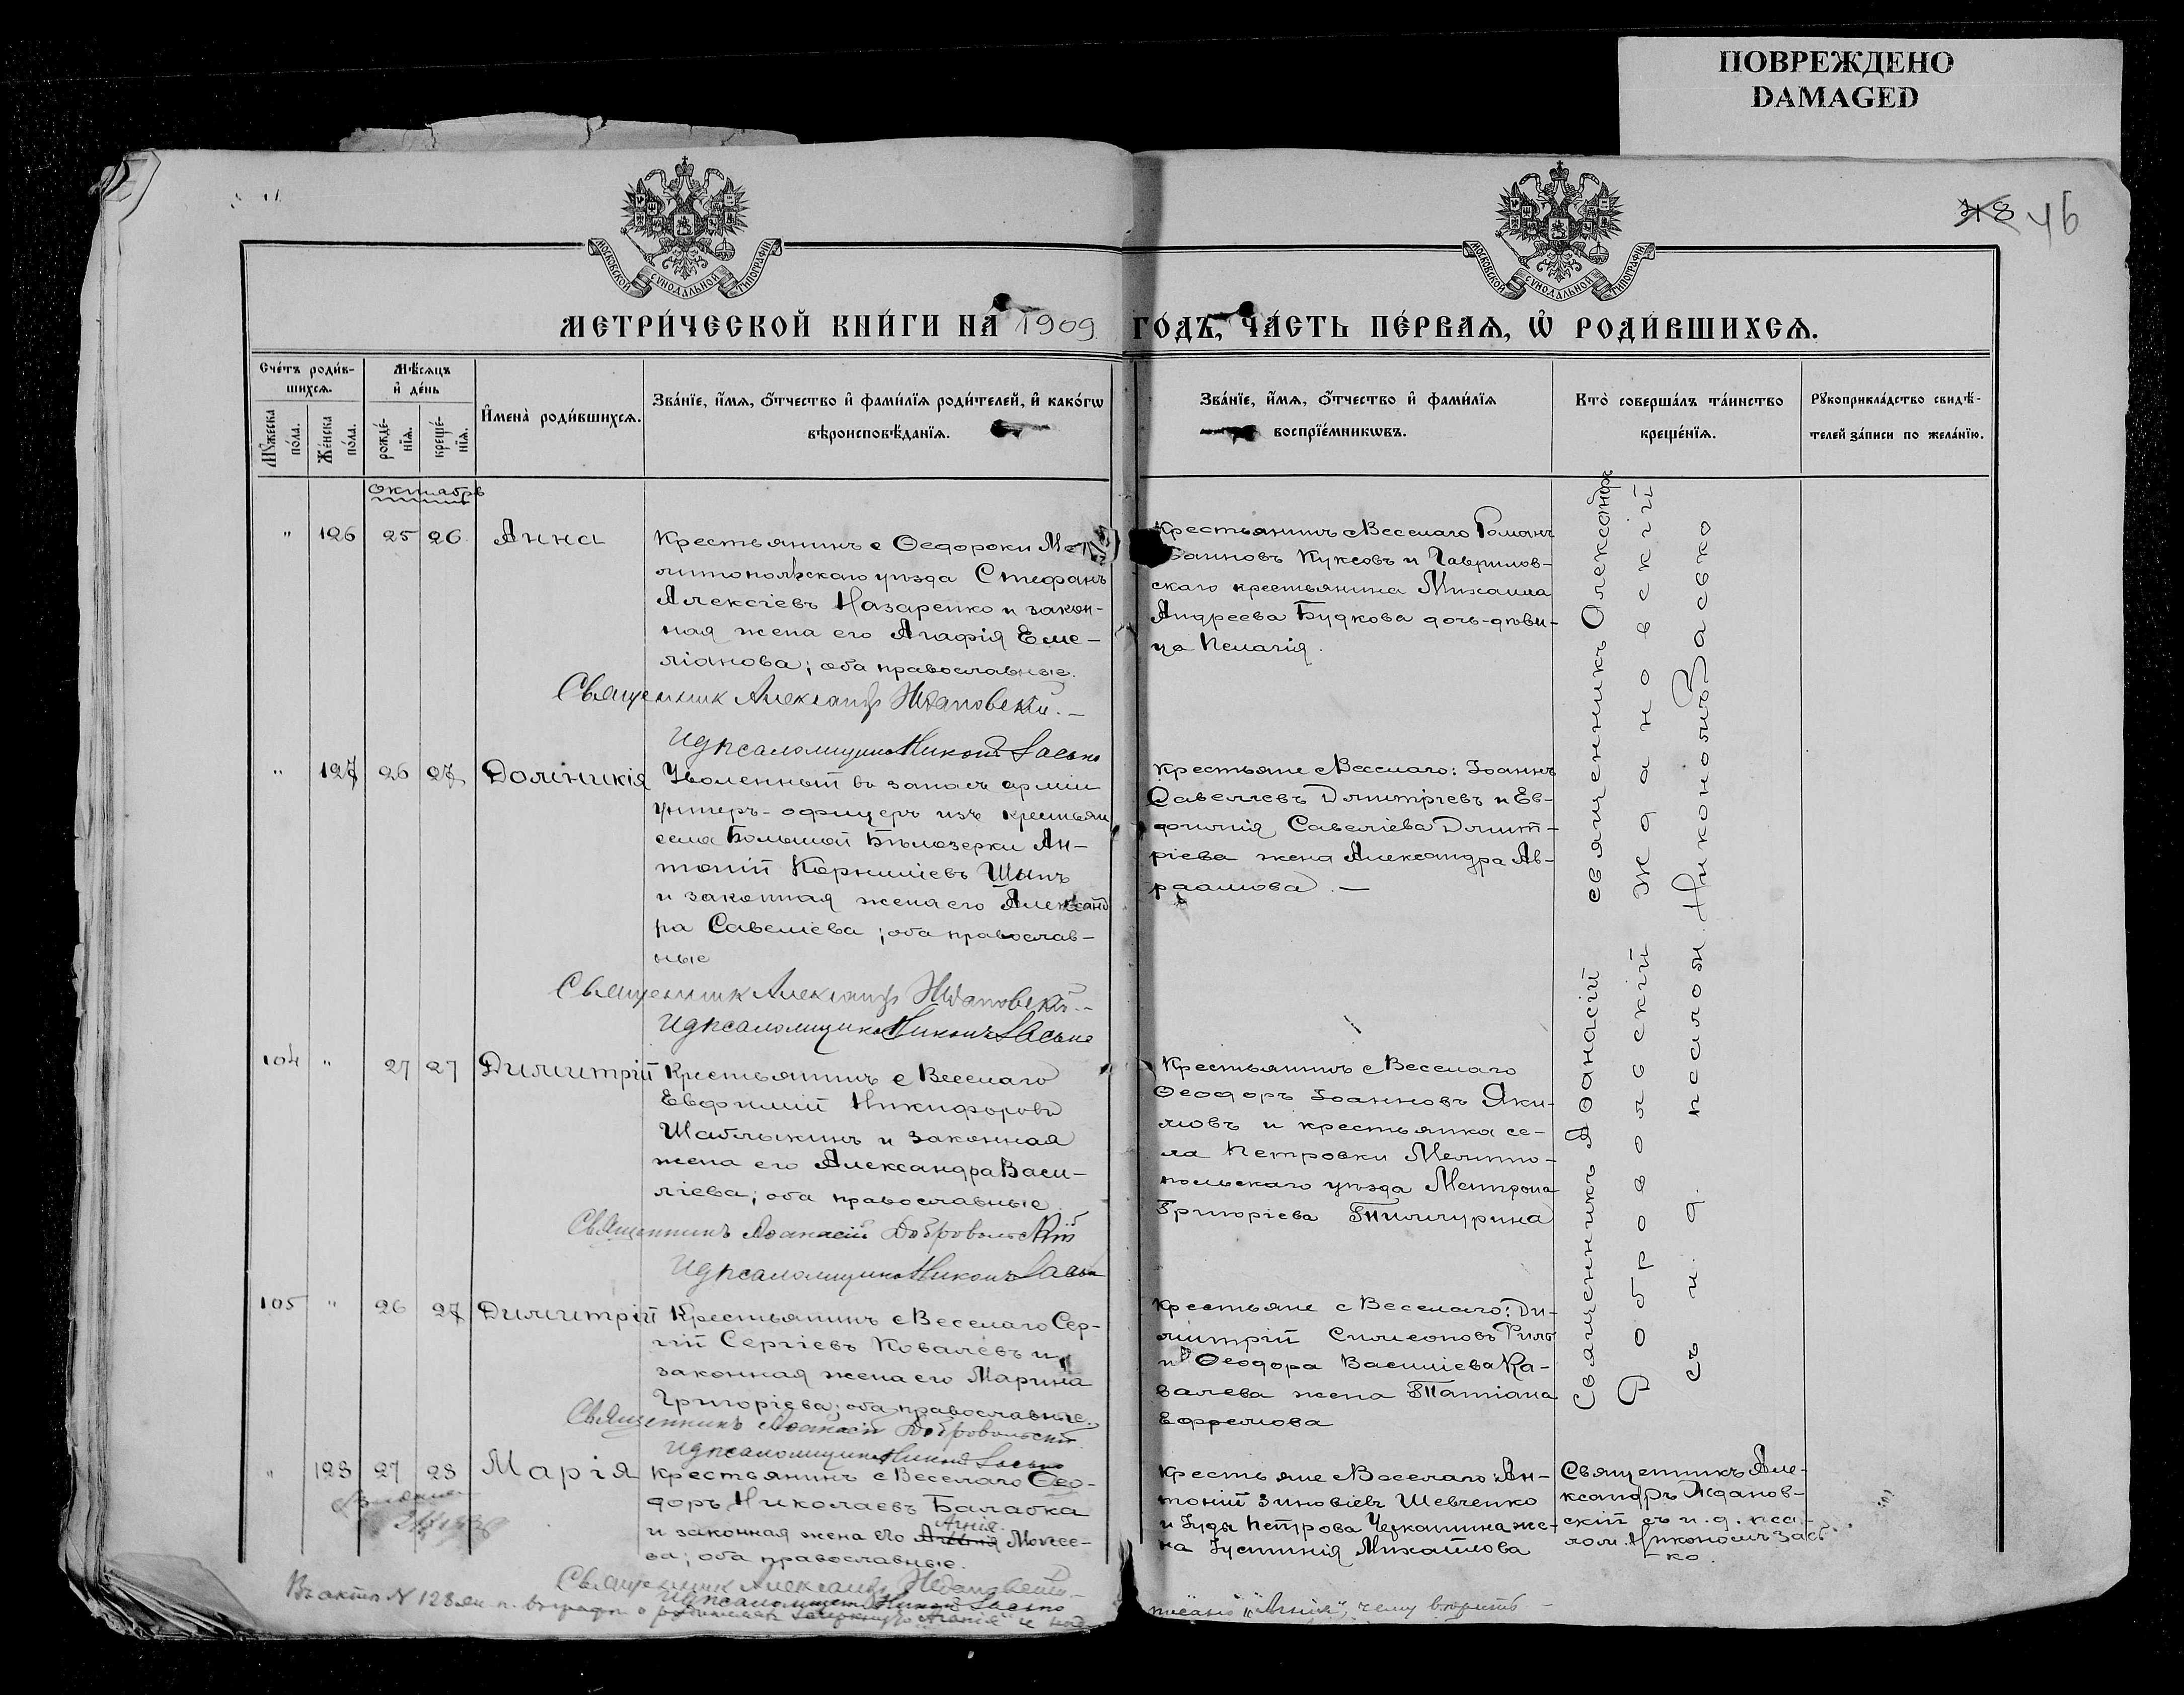 ПОВРЕЖДЕНО
DAMAGED
46
МОСКОВСКОЙ СѴНОДАЛЬНОЙ ТИПОГРАФІИ
МОСКОВСКОЙ СѴНОДАЛЬНОЙ ТИПОГРАФІИ
МЕТРИ́ЧЕСКОЙ КНИ́ГИ НА 1909 ГО́ДЪ, ЧА́СТЬ ПЕ́РВАѦ, Ѡ҆ РОДИ́ВШИХСѦ.
Сче́тъ роди́в-
шихсѧ.
Мꙋ́жеска по́ла.
Же́нска по́ла.
Мѣ́сѧцъ
и҆ де́нь
рожде́-
нїѧ.
креще́-
нїѧ.
И҆мена̀ роди́вшихсѧ.
Зва́нїе, и҆́мѧ, ѻ҆́тчество и҆ фами́лїѧ роди́телей, и҆ како́гѡ
вѣроисповѣ́данїѧ.
Зва́нїе, и҆́мѧ, ѻ҆́тчество и҆ фами́лїѧ
воспрїе́мникѡвъ.
Кто̀ соверша́лъ та́инство
креще́нїѧ.
Рꙋкоприкла́дство свидѣ́-
телей за́писи по жела́нїю.
Октябрь
" 126 25 26 Анна
Крестьянинъ с Ѳедороки Ме-
литопольскаго уѣзда Стефанъ
Алексіевъ Назаренко и закон-
ная жена его Агафія Еме-
ліанова; оба православные.
Священник Александръ Ждановскій.—
И д псаломщика Никонъ Засько
Крестьянинъ с Веселаго Романъ
Іоанновъ Куксовъ и Гаврилов-
скаго крестьянина Михаила
Андреева Будкова дочь-дѣви-
ца Пелагія.
" 127 26 27 Домникія
Уволенный въ запасъ арміи
унтеръ-офицеръ изъ крестьян
села Большой Бѣлозерки Ан-
тоній Корниліевъ Шынъ
и законная жена его Александ
ра Савеліева; оба православ-
ные
Священник Александръ Ждановскій.—
И д псаломщика Никонъ Засько
Крестьяне с Веселаго: Іоаннъ
Савеліевъ Дмитріевъ и Ев-
фимія Савеліева Дмит-
ріева жена Александра Ав-
раамова.—
104 " 27 27 Димитрій
Крестьянинъ с Веселаго
Евфимій Никифоровъ
Шаблыкинъ и законная
жена его Александра Васи-
ліева; оба православные
Священникъ Аѳанасій Добровольскій
И д псаломщика Никонъ Засько
Крестьянинъ с Веселаго
Ѳеодоръ Іоанновъ Яки-
мовъ и крестьянка се-
ла Петровки Мелито-
польскаго уѣзда Матрона
Григоріева
105 " 26 27 Димитрій
Крестьянинъ с Веселаго Сер-
гій Сергіевъ Ковалевъ и
законная жена его Марина
Григоріева; оба православные.
Священникъ Аѳанасій Добровольскій
И д псаломщика Никонъ Засько
Крестьяне с Веселаго: Ди-
митрій Симеоновъ
и Ѳеодора Василіева Ка-
валева жена Татіана
Ефремова
Священникъ Аѳанасій
Добровольскій
священникъ Александръ
Ждановскій
съ и. д. псалом. Никономъ Засько
" 128 27 28 Марія
Крестьянинъ с Веселаго Ѳео-
доръ Николаевъ Балабка
Агнія
и законная жена его Моисе-
ва; оба православные.
Священник Александръ Ждановскій—
И д псаломщика Никонъ Засько
Крестьяне с Веселаго: Ан-
тоній Зиновіевъ Шевченко
и Іуды Петрова Черкашина же-
на Іустинія Михайлова
Священникъ Але-
ксандръ Жданов-
скій съ и. д. пса-
лом. Никономъ Зась-
ко.
Въ актѣ N 128 жен. п. въ графѣ о родителяхъ зачеркнуто и над
писано „Агнія", чему вѣрить—